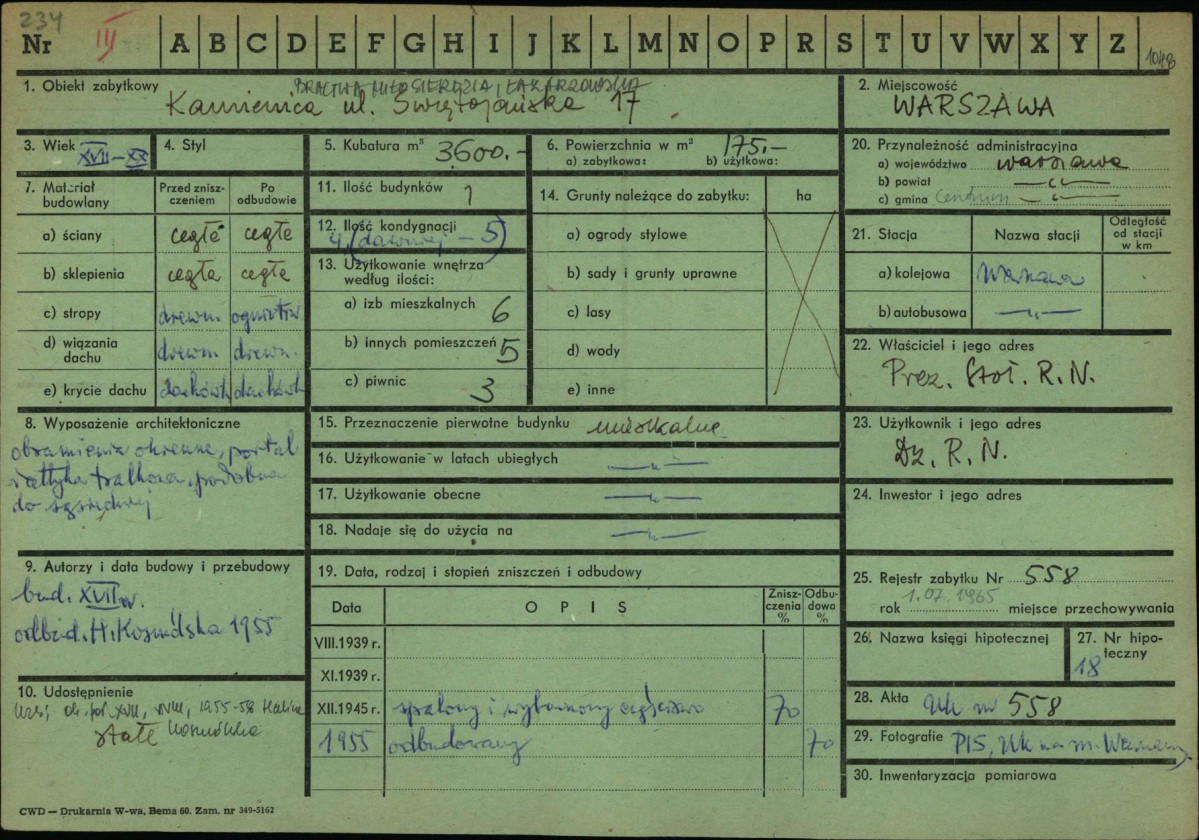 234
Nr III A B C D E F G H I J K L M N O P R S T U V W X Y Z
1048
1. Obiekt zabytkowy
BRACTWA MIŁOSIERDZIA, ŁAKARZOWSKA
Kamienica ul. Świętojańska 17
2. Miejscowość
WARSZAWA
3. Wiek XVII–XX
4. Styl
5. Kubatura m³ 3600.-
6. Powierzchnia w m² 175.-
a) zabytkowa: b) użytkowa:
20. Przynależność administracyjna
a) województwo warszawa
b) powiat —„—
c) gmina Centrum —„—
7. Materiał budowlany
Przed zniszczeniem
Po odbudowie
a) ściany cegła cegła
b) sklepienia cegła cegła
c) stropy drewn. ogniotrw
d) wiązania dachu drewn. drewn.
e) krycie dachu dachówk dachówk
11. Ilość budynków 1
12. Ilość kondygnacji
4 (dawniej – 5)
13. Użytkowanie wnętrza według ilości:
a) izb mieszkalnych 6
b) innych pomieszczeń 5
c) piwnic 3
14. Grunty należące do zabytku: ha
a) ogrody stylowe
b) sady i grunty uprawne
c) lasy
d) wody
e) inne
21. Stacja Nazwa stacji Odległość od stacji w km
a) kolejowa Warszawa
b) autobusowa —„—
22. Właściciel i jego adres
Prez. Stoł. R.N.
8. Wyposażenie architektoniczne
obramienia okienne, portal
i attyka tralkowa, podobna
do sąsiedniej
15. Przeznaczenie pierwotne budynku mieszkalne
16. Użytkowanie w latach ubiegłych —„—
17. Użytkowanie obecne —„—
18. Nadaje się do użycia na —„—
23. Użytkownik i jego adres
Dz. R.N.
24. Inwestor i jego adres
9. Autorzy i data budowy i przebudowy
bud. XVII w.
odbud. H. Kosmólska 1955
19. Data, rodzaj i stopień zniszczeń i odbudowy
Data OPIS Zniszczenia % Odbudowa %
VIII.1939 r.
XI.1939 r.
XII.1945 r. spalony i wyburzony częściowo 70
1955 odbudowany 70
25. Rejestr zabytku Nr 558
rok 1.07.1965 miejsce przechowywania
26. Nazwa księgi hipotecznej
27. Nr hipoteczny
18
10. Udostępnienie
XVII, XVIII, 1955-58 Halina
Kosmólska
stałe
28. Akta Uk nr 558
29. Fotografie PIS, Uk na m. Warszawę
30. Inwentaryzacja pomiarowa
CWD — Drukarnia W-wa, Bema 60. Zam. nr 349-5162